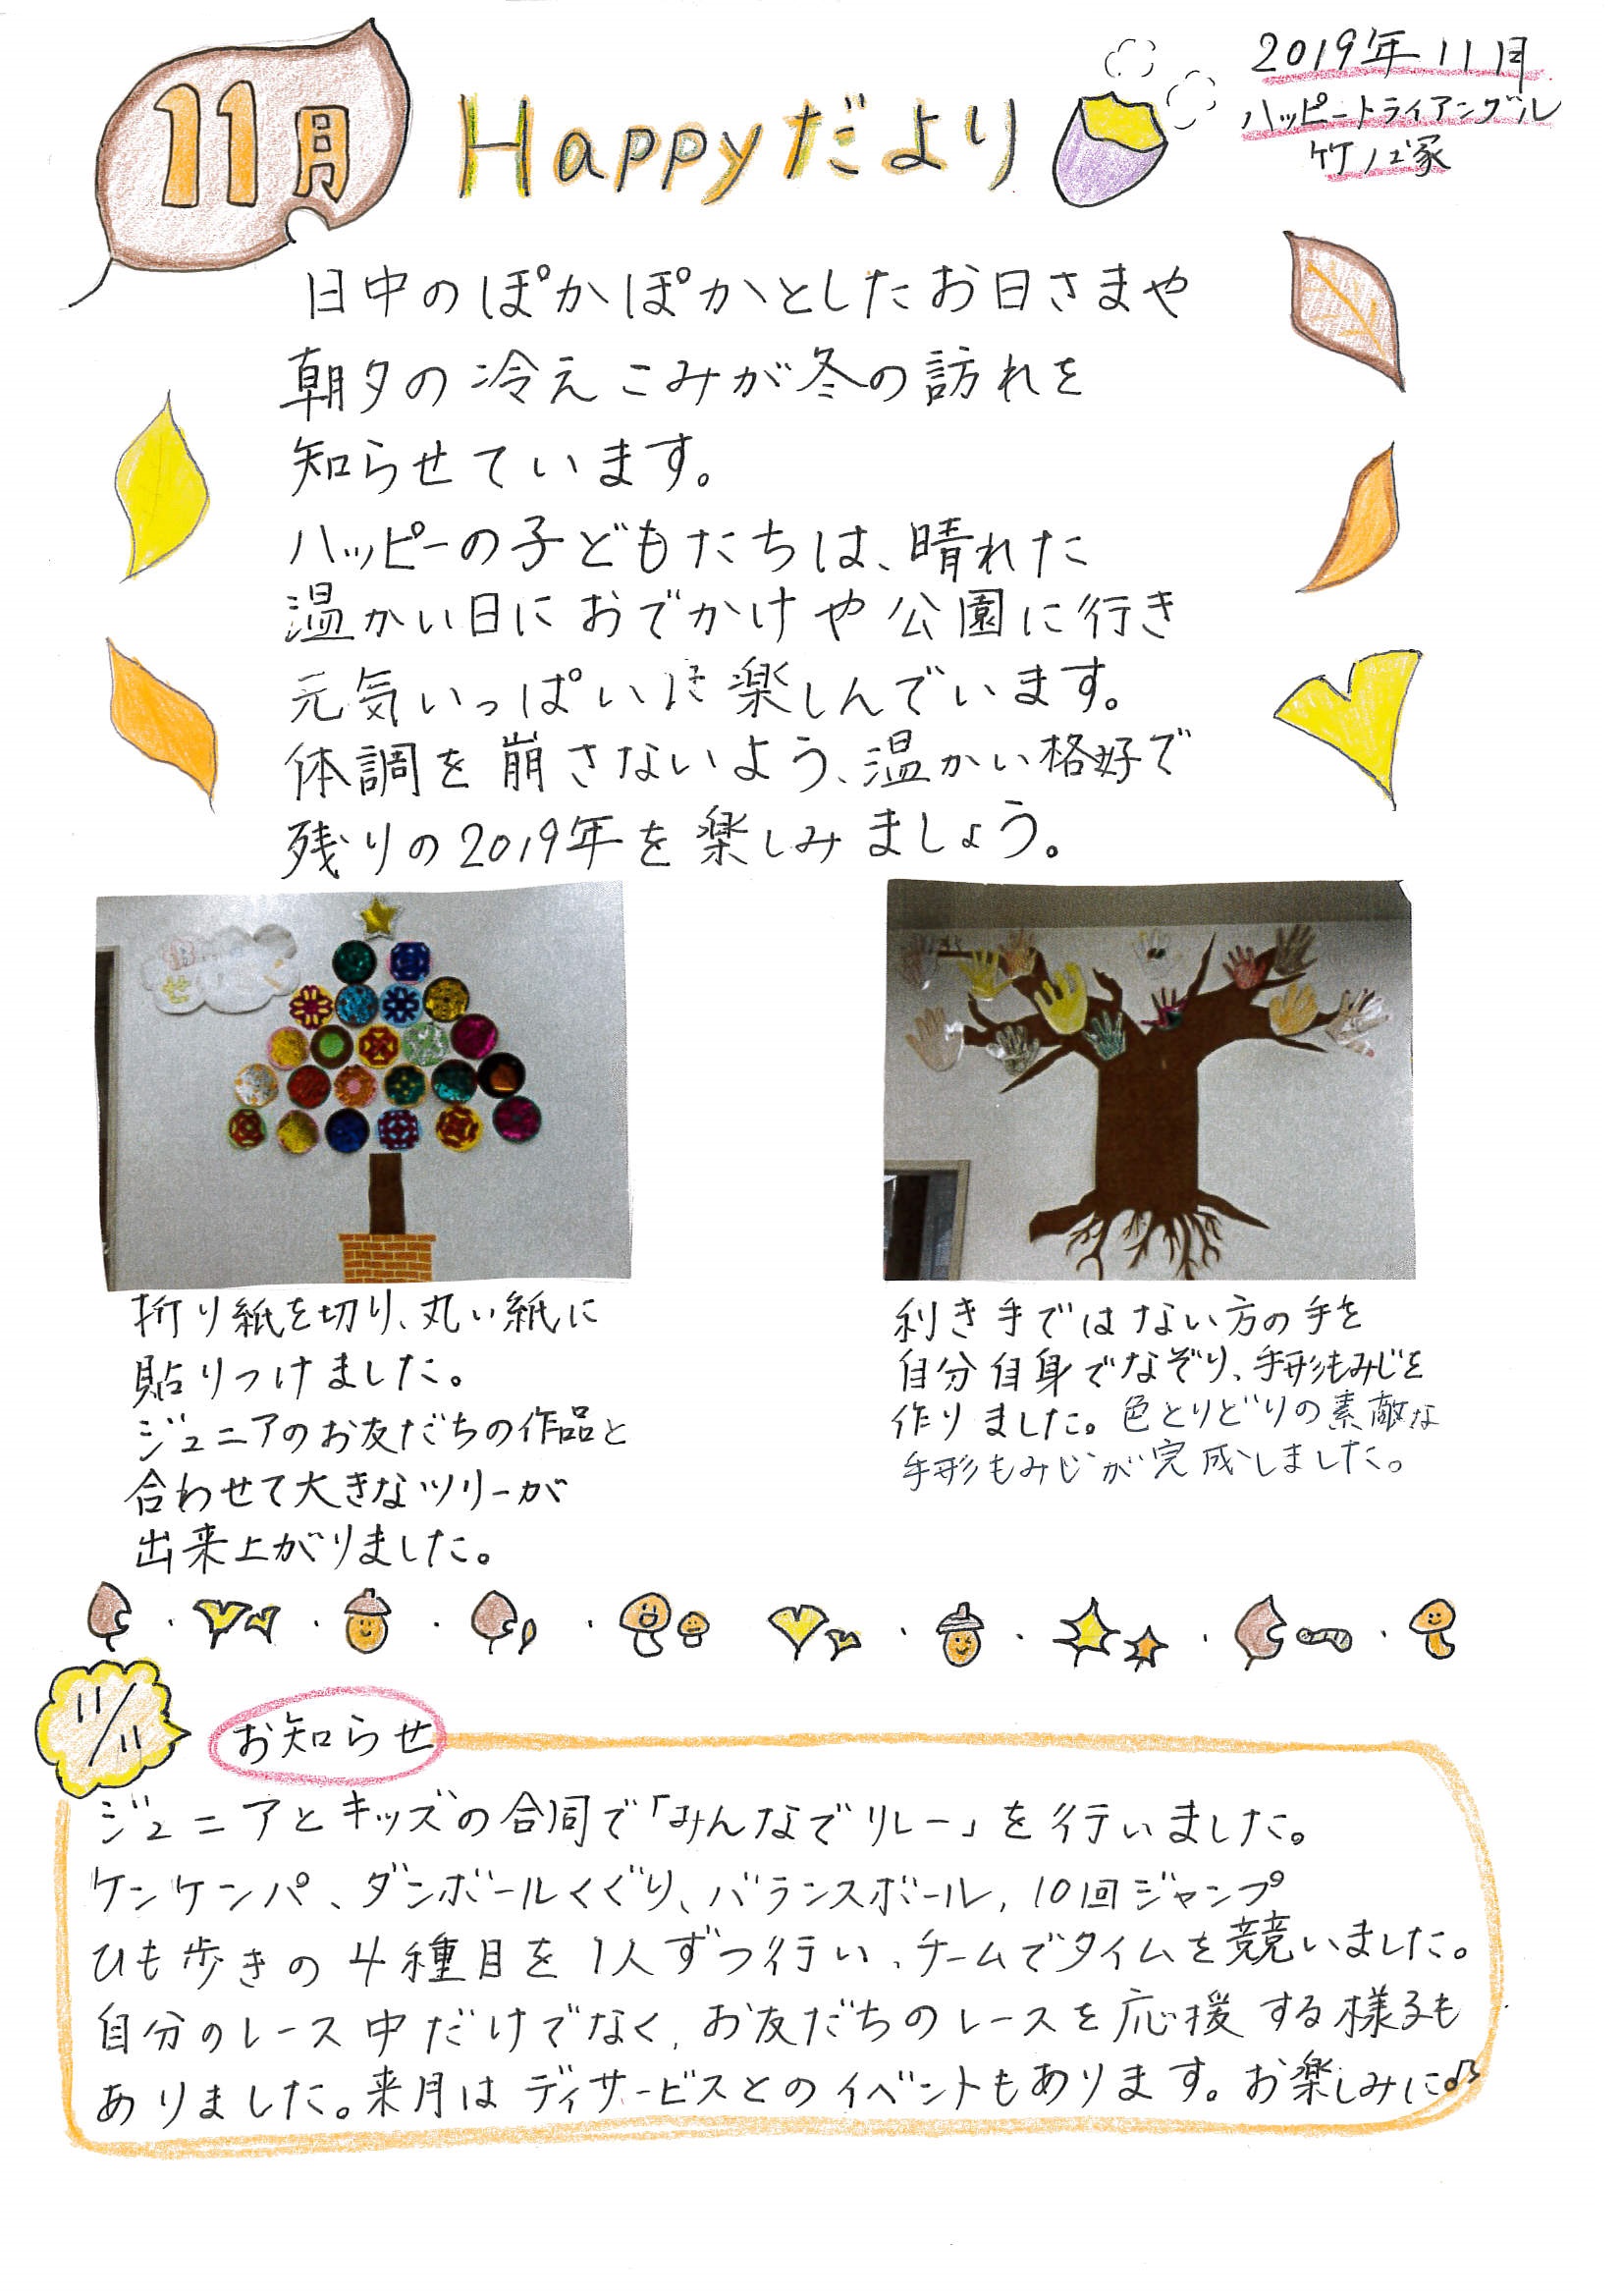 11月
Happyだより
2019年11月
ハッピートライアングル
竹ノ塚
日中のぽかぽかとしたお日さまや
朝夕の冷えこみが冬の訪れを
知らせています。
ハッピーの子どもたちは、晴れた
温かい日におでかけや公園に行き
元気いっぱいに楽しんでいます。
体調を崩さないよう、温かい格好で
残りの2019年を楽しみましょう。
折り紙を切り、丸い紙に
貼りつけました。
ジュニアのお友だちの作品と
合わせて大きなツリーが
出来上がりました。
利き手ではない方の手を
自分自身でなぞり、手形もみじを
作りました。色とりどりの素敵な
手形もみじが完成しました。
11/11
お知らせ
ジュニアとキッズの合同で「みんなでリレー」を行いました。
ケンケンパ、ダンボールくぐり、バランスボール、10回ジャンプ
ひも歩きの4種目を1人ずつ行い、チームでタイムを競いました。
自分のレース中だけでなく、お友だちのレースを応援する様子も
ありました。来月はデイサービスとのイベントもあります。お楽しみに♫